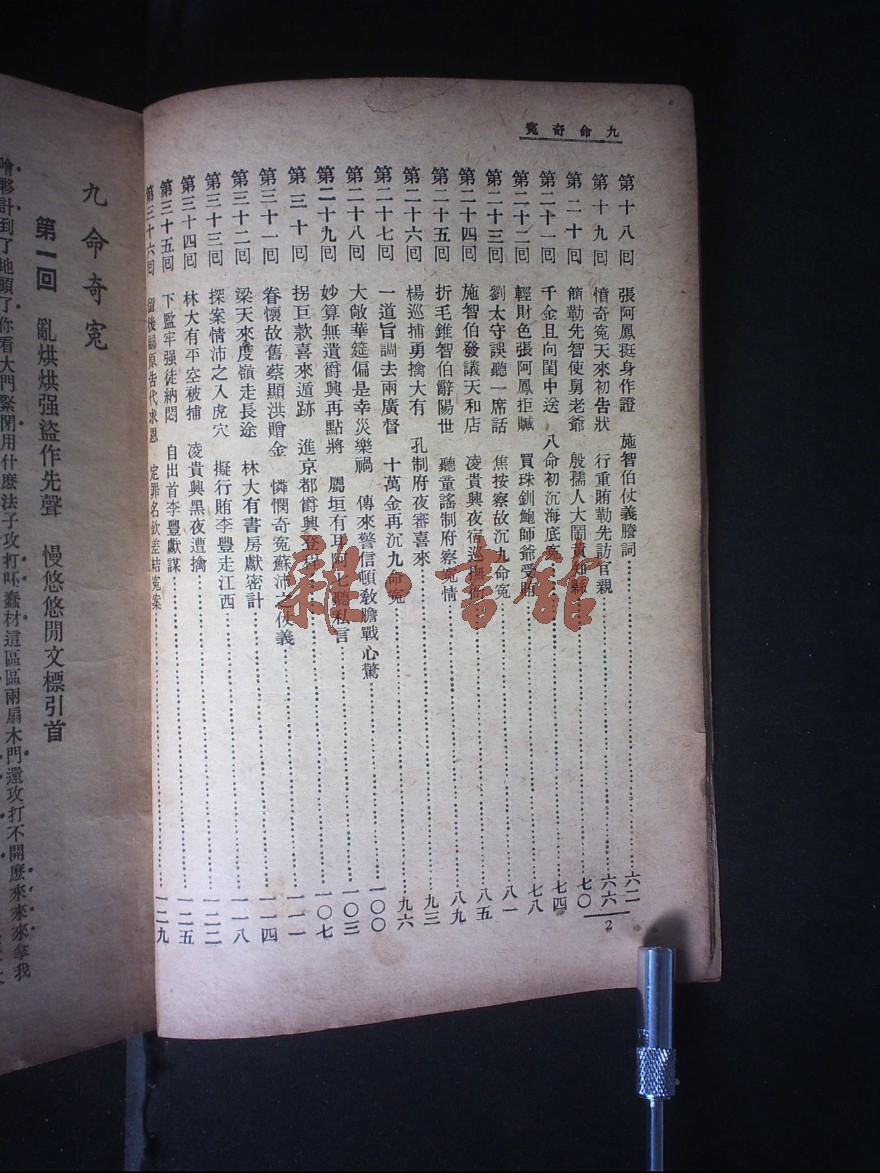 九命奇冤
第十八回 張阿鳳挺身作證 施智伯仗義謄詞 六二
第十九回 憤奇冤天來初告狀 行重賄勒先訪官親 六六
第二十回 簡勒先智使舅老爺 殷孺人大鬧黃知縣 七〇
第二十一回 千金且向閨中送 八命初沉海底冤 七四
第二十二回 輕財色張阿鳳拒贓 買珠釧鮑師爺受賄 七八
第二十三回 劉太守誤聽一席話 焦按察故沉九命冤 八一
第二十四回 施智伯發議天和店 凌貴興夜宿巡撫衙 八五
第二十五回 折毛錐智伯辭陽世 聽童謠制府察冤情 八九
第二十六回 楊巡捕勇擒大有 孔制府夜審喜來 九三
第二十七回 一道旨調去兩廣督 十萬金再沉九命冤 九六
第二十八回 大敞華筵偏是幸災樂禍 傳來警信頓教膽戰心驚 一〇〇
第二十九回 妙算無遺爵興再點將 屬垣有耳阿七聽私言 一〇三
第三十回 拐巨款喜來遁跡 進京都爵興登科 一〇七
第三十一回 眷懷故舊蔡顯洪贈金 憐憫奇冤蘇沛之仗義 一一一
第三十二回 梁天來度嶺走長途 林大有書房獻密計 一一四
第三十三回 探案情沛之入虎穴 擬行賄李豐走江西 一一八
第三十四回 林大有平空被捕 凌貴興黑夜遭擒 一二二
第三十五回 下監牢强徒納悶 自出首李豐獻謀 一二五
第三十六回 留後嗣原告代求恩 定罪名欽差結冤案 一二九
2
九命奇冤
第一回 亂烘烘强盜作先聲 慢悠悠閒文標引首
噲夥計到了地頭了你看大門緊閉用什麼法子攻打呸蠢材這區區兩扇木門還攻打不開麼來來來拿我
雜·書館